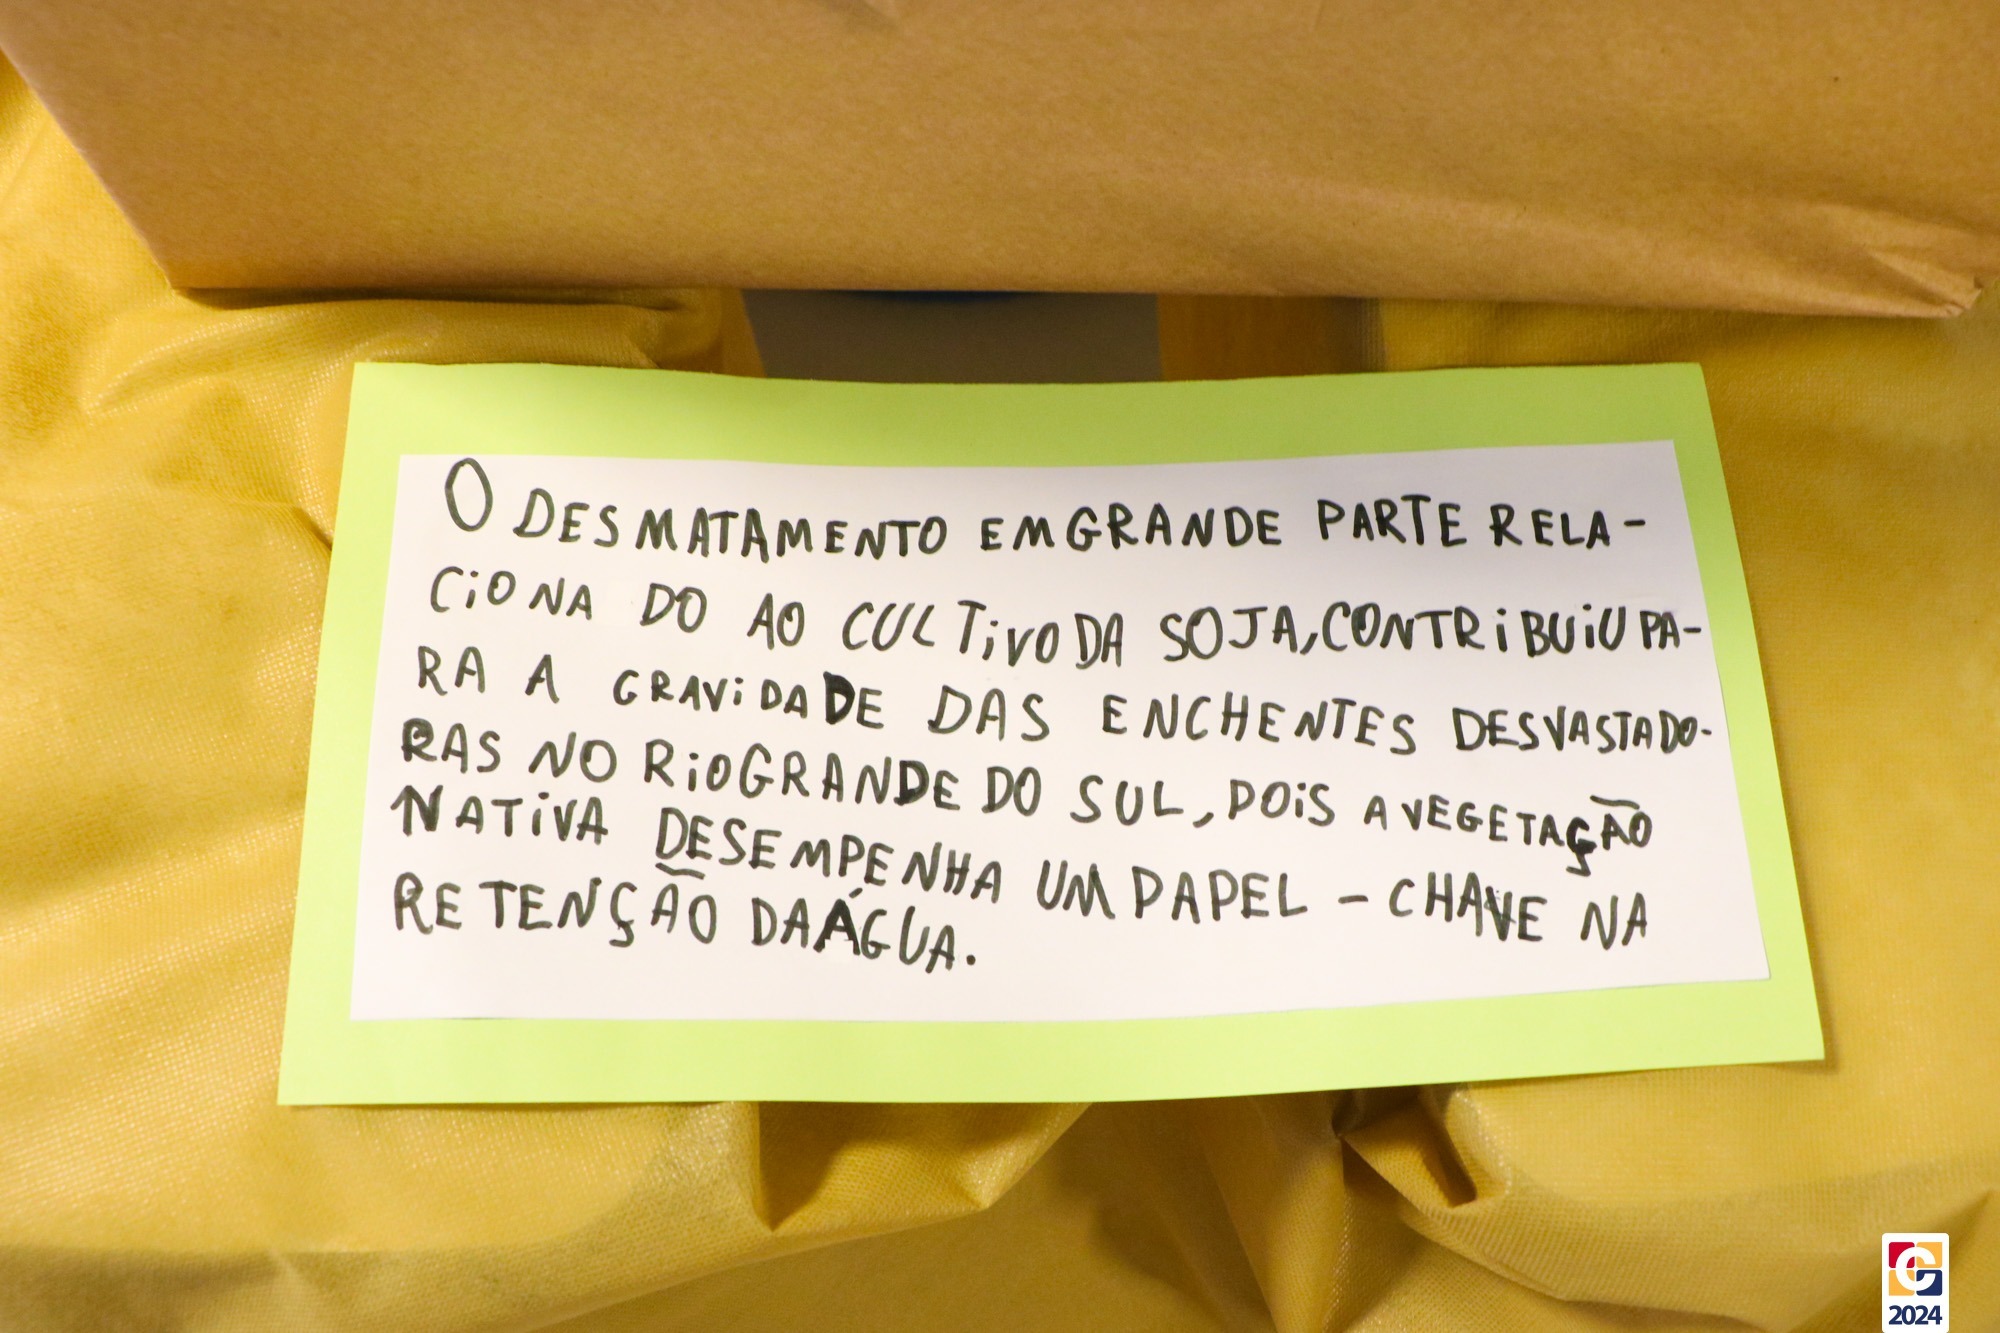 O DESMATAMENTO EM GRANDE PARTE RELA-
CiONA DO AO CULTiVO DA SOJA, CONTRiBUiU PA-
RA A GRAViDADE DAS ENCHENTES DESVASTADO-
RAS NO RiO GRANDE DO SUL, POiS A VEGETAÇÃO
NATiVA DESEMPENHA UM PAPEL - CHAVE NA
RETENÇÃO DA ÁGUA.
G
2024